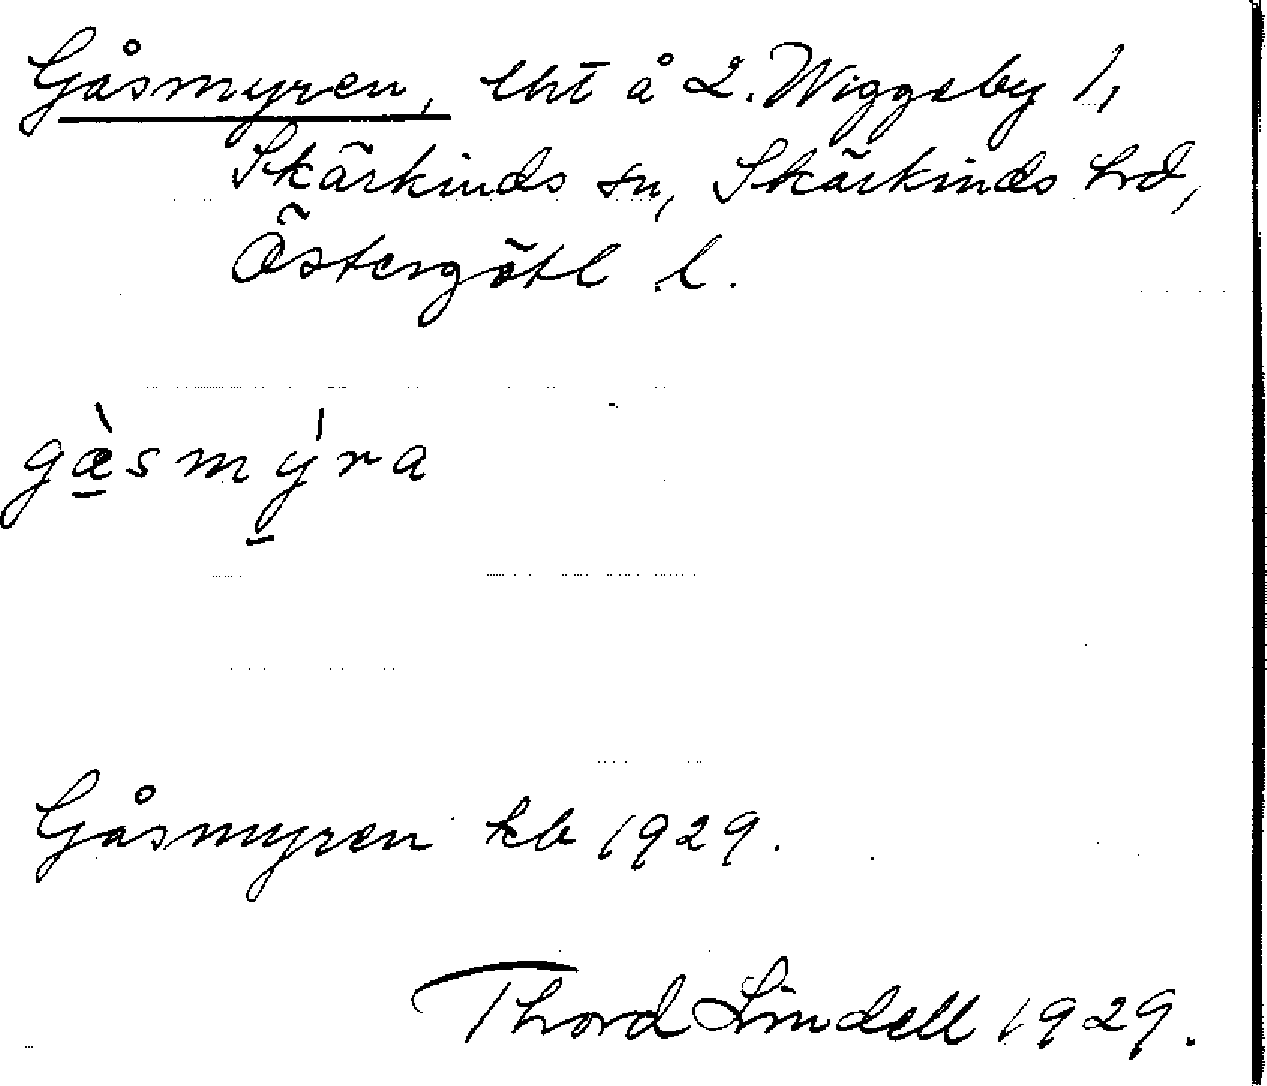 Gåsmyren, lht å L. Wiggeby 1,
Skärkinds sn, Skärkinds hrd,
Östergötl l.
gæ̀smýra
Gåsmyren kb 1929.
Thord Lindell 1929.